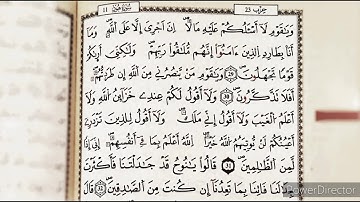 سُورَةُ هُودٍ 11
حزب 23
وَيَٰقَوْمِ لَآ أَسْـَٔلُكُمْ عَلَيْهِ مَالًا إِنْ أَجْرِيَ إِلَّا عَلَى اَللَّهِ وَمَآ
أَنَا بِطَارِدِ اِلذِينَ ءَامَنُوٓاْ إِنَّهُم مُّلَٰقُواْ رَبِّهِمْ وَلَٰكِنِّيَ أَر۪ىٰكُمْ
قَوْمًا تَجْهَلُونَ 29 وَيَٰقَوْمِ مَنْ يَّنصُرُنِي مِنَ اَللَّهِ إِن طَرَدتُّهُمْ
أَفَلَا تَذَّكَّرُونَ 30 وَلَآ أَقُولُ لَكُمْ عِندِي خَزَآئِنُ اُللَّهِ وَلَآ
أَعْلَمُ اُلْغَيْبَ وَلَآ أَقُولُ إِنِّي مَلَكٌ وَلَآ أَقُولُ لِلذِينَ تَزْدَرِيٓ
أَعْيُنُكُمْ لَنْ يُّوتِيَهُمُ اُللَّهُ خَيْرًا اِللَّهُ أَعْلَمُ بِمَا فِي أَنفُسِهِمْ إِنِّيَ إِذًا
لَّمِنَ اَلظَّٰلِمِينَ 31 قَالُواْ يَٰنُوحُ قَدْ جَٰدَلْتَنَا فَأَكْثَرْتَ
جِدَٰلَنَا فَاتِنَا بِمَا تَعِدُنَآ إِن كُنتَ مِنَ اَلصَّٰدِقِينَ 32 قَالَ
PowerDirector